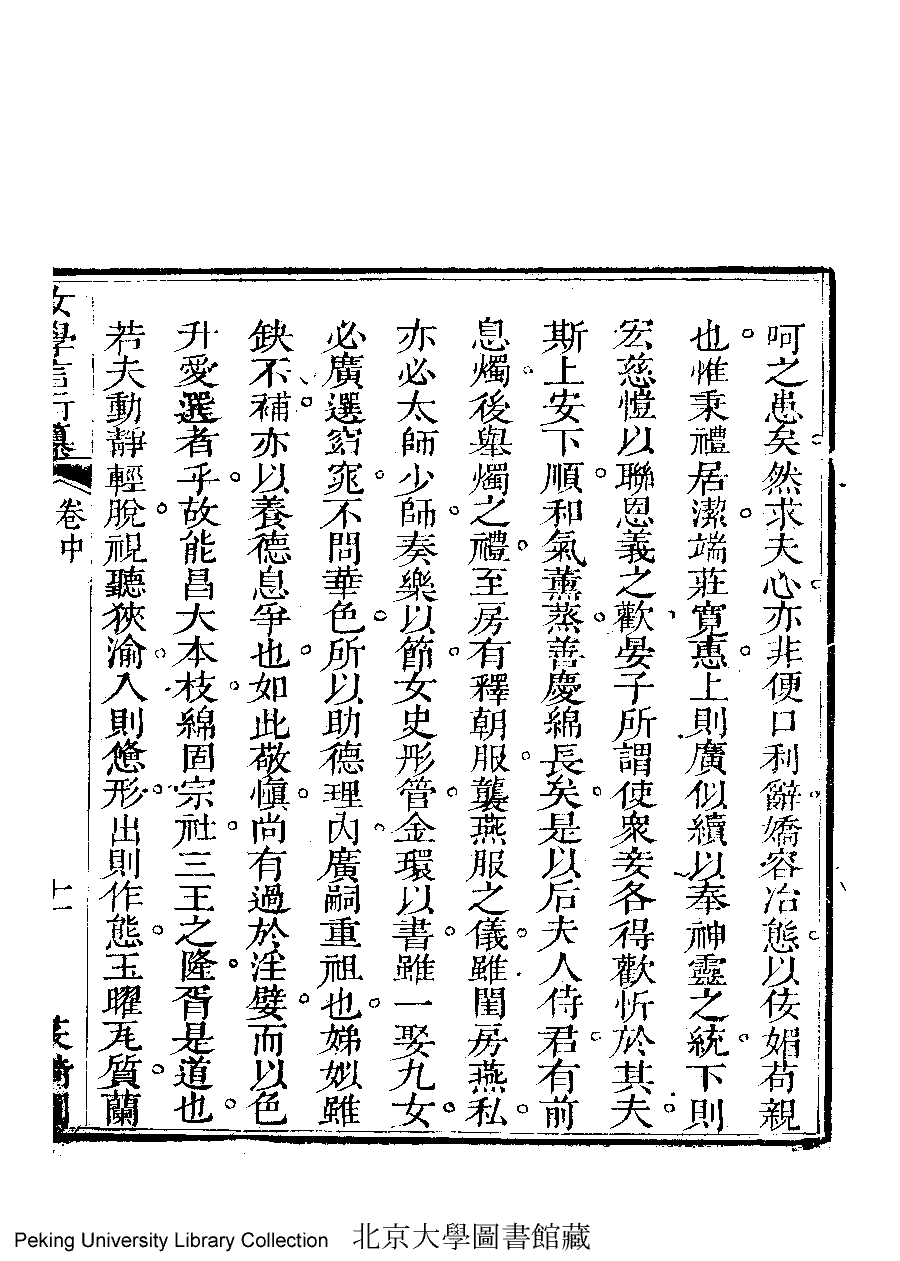 呵之患矣。然求夫心。亦非便口利辭。嬌容冶態。以伎媚苟親
也。惟秉禮居潔。端莊寬惠。上則廣似續以奉神靈之統。下則
宏慈愷以聯恩義之歡。晏子所謂使衆妾各得歡忻於其夫。
斯上安下順。和氣薰蒸。善慶綿長矣。是以后夫人侍君。有前
息燭。後舉燭之禮。至房有釋朝服。襲燕服之儀。雖閨房燕私。
亦必太師少師。奏樂以節。女史彤管。金環以書。雖一娶九女。
必廣選窈窕。不問華色。所以助德理內。廣嗣重祖也。娣姒雖
缺不補。亦以養德息爭也。如此敬愼。尚有過於淫嬖。而以色
升愛選者乎。故能昌大本枝。綿固宗社。三王之隆。胥是道也。
若夫動靜輕脫。視聽狹渝。入則惓形。出則作態。玉曜瓦質。蘭
女學言行纂
卷中
十一